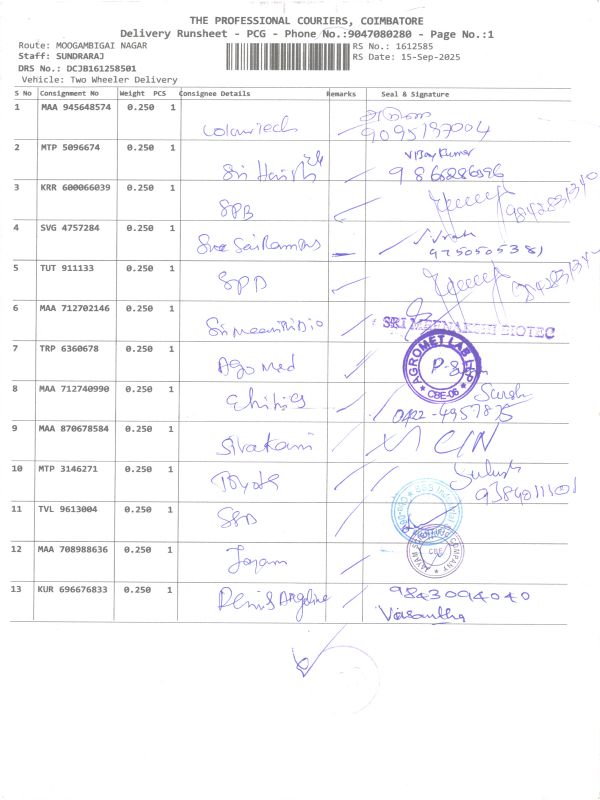 THE PROFESSIONAL COURIERS, COIMBATORE
Delivery Runsheet - PCG - Phone No.:9047080280 - Page No.:1
Route: MOOGAMBIGAI NAGAR
RS No.: 1612585
Staff: SUNDRARAJ
RS Date: 15-Sep-2025
DRS No.: DCJB161258501
Vehicle: Two Wheeler Delivery
S No Consignment No Weight PCS Consignee Details Remarks Seal & Signature
1 MAA 945648574 0.250 1 ColourTech
9095197004
2 MTP 5096674 0.250 1 Sri Harish Vijay Kumar
9866286596
3 KRR 600066039 0.250 1 SPB
4 SVG 4757284 0.250 1 Sree SaiRam
9750505381
5 TUT 911133 0.250 1 SPD
6 MAA 712702146 0.250 1 SRI MEENAKSHI BIOTEC
7 TRP 6360678 0.250 1 Agromed AGROMET LAB CBE-06
8 MAA 712740990 0.250 1 Suresh
0422-4957875
9 MAA 870678584 0.250 1 Sivakami C/N
10 MTP 3146271 0.250 1 Toyota
9384011101
11 TVL 9613004 0.250 1 SSD
12 MAA 708988636 0.250 1 Jayam CBE COMPANY
13 KUR 696676833 0.250 1 Denis Angeline 9843094040
Vasantha